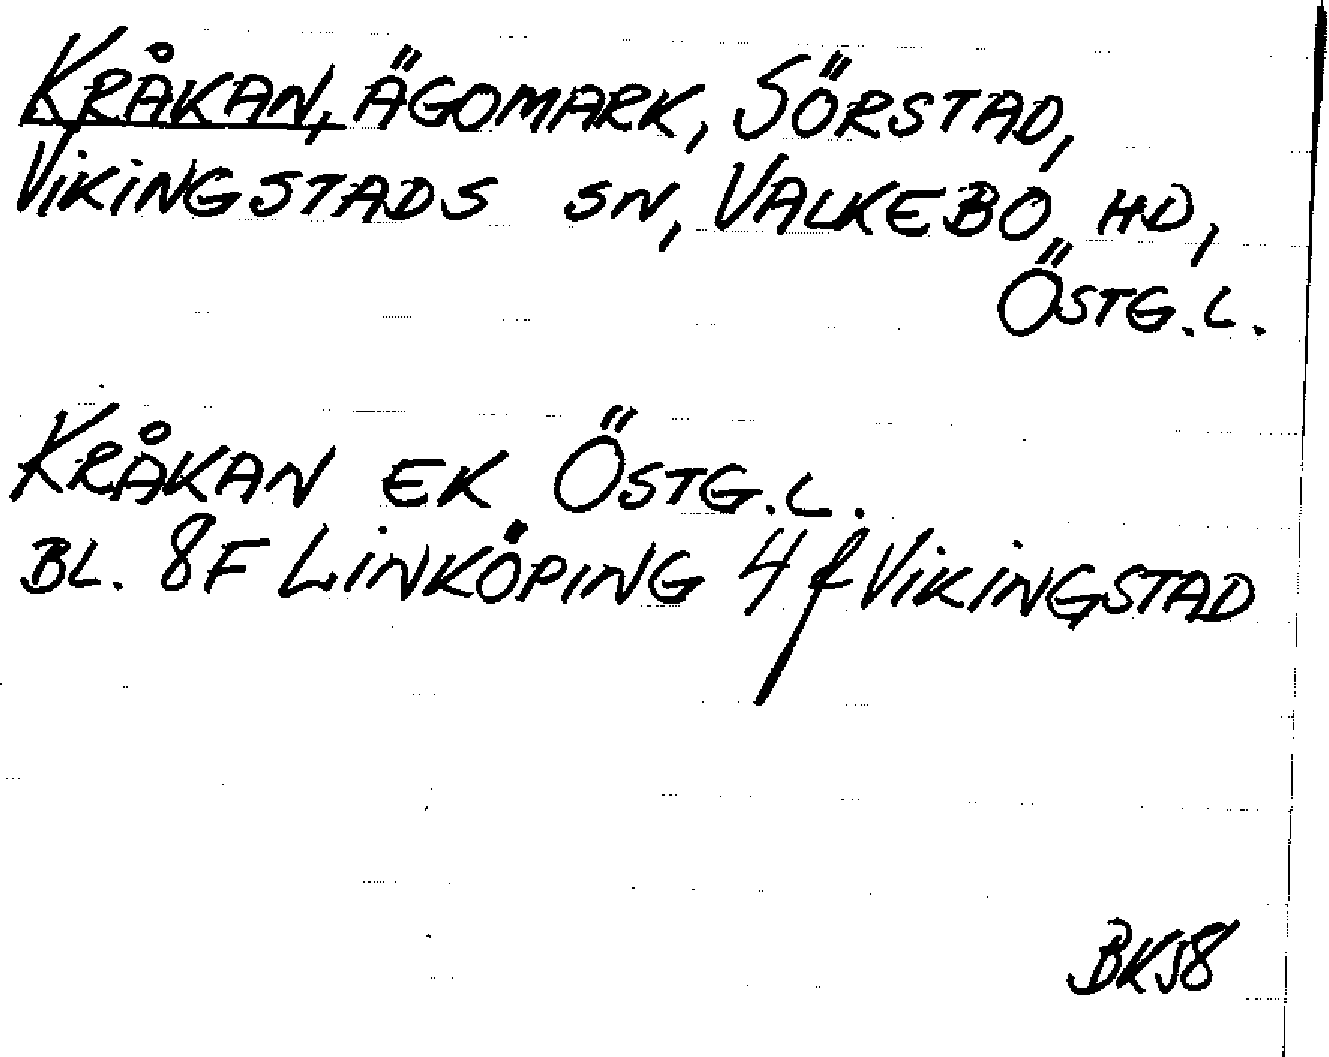 KRÅKAN, ÄGOMARK, SÖRSTAD,
VIKINGSTADS SN, VALKEBO HD,
ÖSTG.L.
KRÅKAN EK ÖSTG.L.
BL. 8F LINKÖPING 4f VIKINGSTAD
BK58